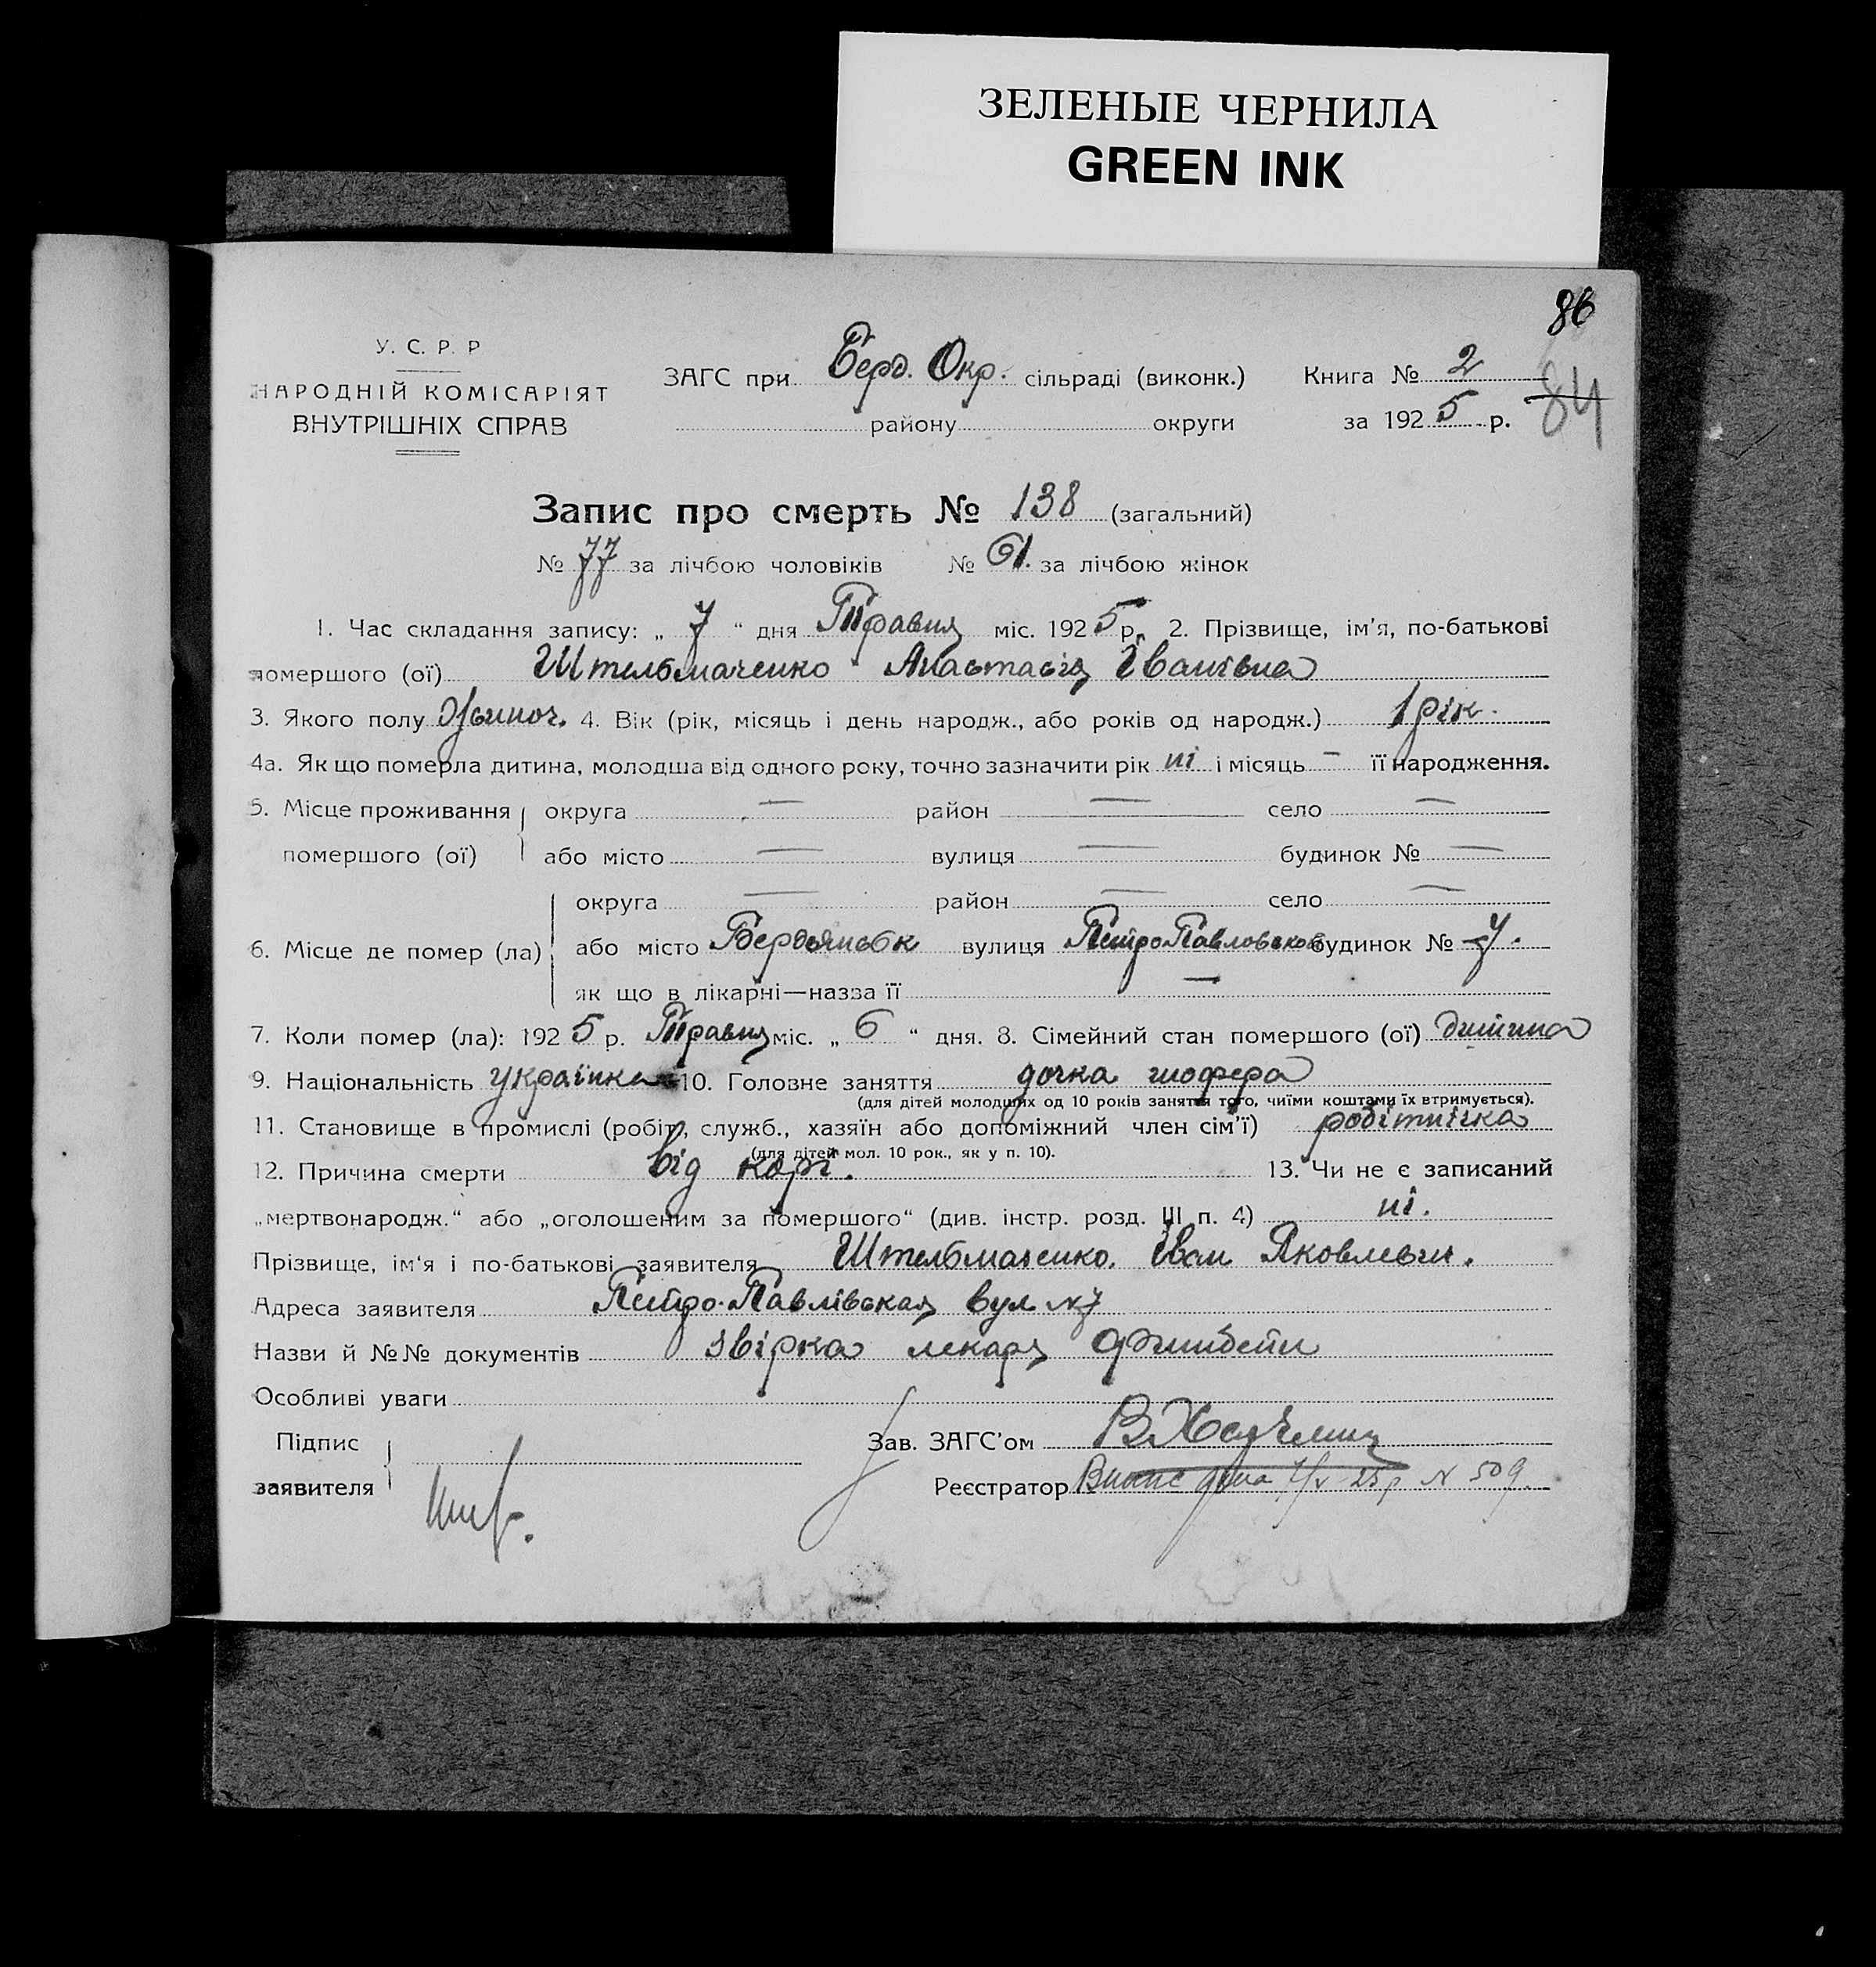 ЗЕЛЕНЫЕ ЧЕРНИЛА
GREEN INK
86
84
У. С. Р. Р
НАРОДНІЙ КОМІСАРІЯТ
ВНУТРІШНІХ СПРАВ
ЗАГС при Берд. Окр. сільраді (виконк.)
району округи
Книга № 2
за 1925 р.
Запис про смерть № 138 (загальний)
№ 77 за лічбою чоловіків № 61. за лічбою жінок
1. Час складання запису: „ 7 “ дня Травня міс. 1925 р. 2. Прізвище, ім'я, по-батькові
помершого (ої) Штельмаченко Анастасія Іванівна
3. Якого полу Жыноч. 4. Вік (рік, місяць і день народж., або років од народж.) 1 рік.
4а. Як що померла дитина, молодша від одного року, точно зазначити рік ні і місяць — її народження.
5. Місце проживання округа — район — село —
помершого (ої) або місто — вулиця — будинок № —
округа — район — село —
6. Місце де помер (ла) або місто Бердянськ вулиця Петро Павловська будинок № 7.
як що в лікарні—назва її —
7. Коли помер (ла): 1925 р. Травня міс. „ 6 “ дня. 8. Сімейний стан помершого (ої) дитина
9. Національність українка 10. Головне заняття дочка шофера
(для дітей молодших од 10 років заняття того, чиїми коштами їх втримується).
11. Становище в промислі (робіт., служб., хазяїн або допоміжний член сім'ї) робітничка
(для дітей мол. 10 рок., як у п. 10).
12. Причина смерти від корі. 13. Чи не є записаний
„мертвонародж.“ або „оголошеним за помершого“ (див. інстр. розд. III п. 4) ні.
Прізвище, ім'я і по-батькові заявителя Штельмаченко. Іван Яковлевич.
Адреса заявителя Петро-Павлівская вул № 7
Назви й №№ документів звірка лекаря
Особливі уваги
Підпис
заявителя
Зав. ЗАГС'ом
Реєстратор Випис дана 7/V-25 р N 509.